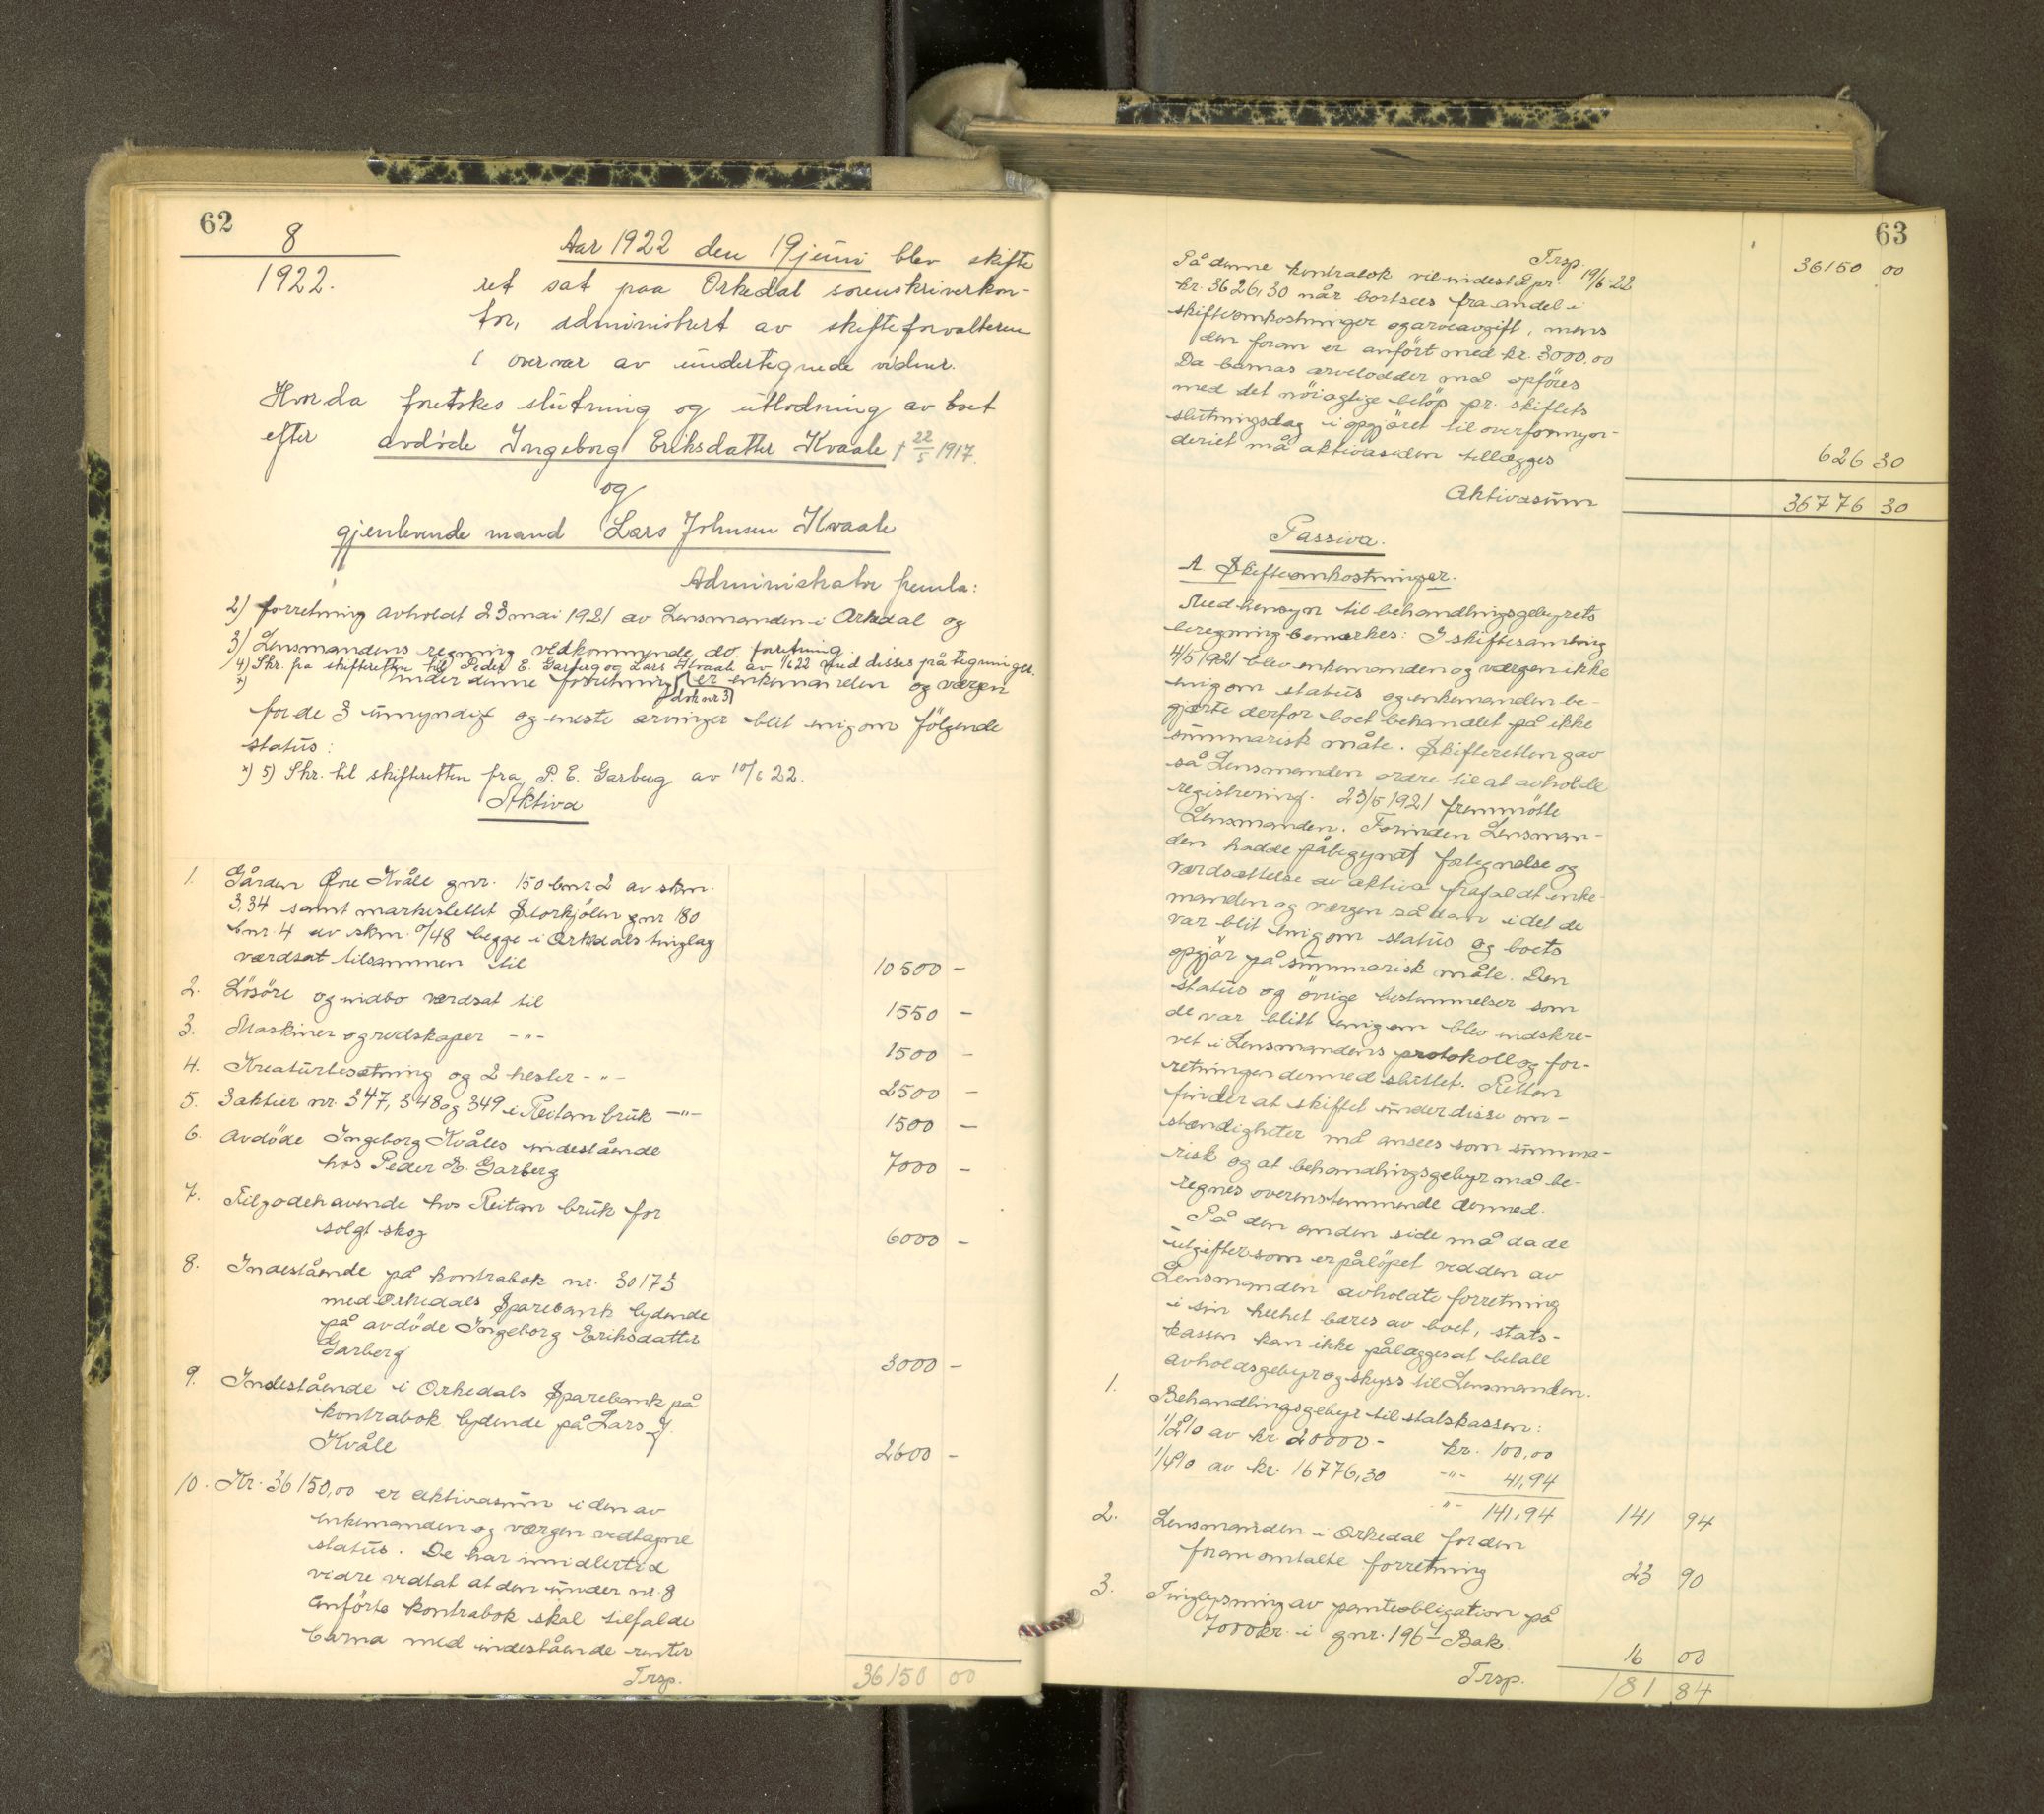 62
8
1922.
Aar 1922 den 19 juni blev skifte
ret sat paa Orkedal sorenskriverkon-
tor, administrert av skifteforvalteren
i overvær av undertegnede vidner.
Hvorda foretokes slutning og utlodning av boet
efter avdøde Ingeborg Eriksdatter Kvaale † 22/5 1917.
og
gjenlevende mand Lars Johnsen Kvaale
Administrator fremla:
2) forretning avholdt 23 mai 1921 av Lensmanden i Orkedal og
3) Lensmandens regning vedkommende do. forretning.
4) Skr. fra skifteretten til Peder E. Garberg og Lars Kvaale av 1/6 22 med disses påtegninger.
x) Under denne forretning (dok nr 3) er enkemanden og værgen
for de 3 umyndige og eneste arvinger blit enig om følgende
status:
x) 5) Skr. til skifteretten fra P. E. Garberg av 10/6 22.
Aktiva
1. Gården Øvre Kvåle gnr. 150 bnr 2 av skm.
3,34 samt markeslettet Storkjølen gnr 180
bnr. 4 av skm. 0/48 begge i Orkedals tinglag
værdsat tilsammen til 10500 -
2. Løsøre og indbo værdsat til 1550 -
3. Maskiner og redskaper -"- 1500 -
4. Kreaturbesætning og 2 hester -"- 2500 -
5. 3 aktier nr. 347, 348 og 349 i Reitan bruk -"- 1500 -
6. Avdøde Ingeborg Kvåles indestående
hos Peder E. Garberg 7000 -
7. Tilgodehavende hos Reitan bruk for
solgt skog 6000 -
8. Indestående på kontrabok nr. 30175
med Orkedals Sparebank lydende
på avdøde Ingeborg Eriksdatter
Garberg 3000 -
9. Indestående i Orkedals Sparebank på
kontrabok lydende på Lars J.
Kvåle 2600 -
10. Kr. 36150,00 er aktivasum i den av
enkemanden og værgen vedtagne
status. De har imidlertid
videre vedtat at den under nr. 8
anførte kontrabok skal tilfalde
barna med indestående renter
Trsp. 36150 00
63
Trsp. 36150 00
På denne kontrabok vil indestå pr. 19/6-22
kr. 3626,30 når bortsees fra andel i
skifteomkostninger og arveavgift, mens
den foran er anført med kr. 3000,00
Da barnas arvelodder må opføres
med det nøiagtige beløp pr. skiftets
slutningsdag i opgjøret til overformyn-
deriet må aktivasiden tillægges 626 30
Aktivasum 36776 30
Passiva.
A. Skifteomkostninger.
Med hensyn til behandlingsgebyrets
beregning bemerkes: I skiftesamling
4/5 1921 blev enkemanden og værgen ikke
enig om status og enkemanden be-
gjærte derfor boet behandlet på ikke
summarisk måte. Skifteretten gav
så Lensmanden ordre til at avholde
registrering. 23/5 1921 fremmøtte
Lensmanden. Forinden Lensman-
den hadde påbegyndt fortegnelse og
værdsættelse av aktiva frafaldt enke-
manden og værgen sådan idet de
var blit enig om status og boets
opgjør på summarisk måte. Den
status og øvrige bestemmelser som
de var blitt enig om blev indskre-
vet i Lensmandens protokoll og for-
retningen dermed sluttet. Retten
finder at skiftet under disse om-
stændigheter må ansees som summa-
risk og at behandlingsgebyr må be-
regnes overensstemmende dermed.
På den anden side må da de
utgifter som er påløpet ved den av
Lensmanden avholdte forretning
i sin helhet bæres av boet, stats-
kassen kan ikke pålægges at betale
avholdsgebyr og skyss til Lensmanden.
1. Behandlingsgebyr til statskassen:
1/2% av kr 20000 - kr. 100,00
1/4% av kr. 16776,30 -"- 41,94
-"- 141,94 141 94
2. Lensmanden i Orkedal for den
foran omtalte forretning 23 90
3. Tinglysning av panteobligation på
7000 kr. i gnr. 196/1 Bak 16 00
Trsp. 181 84